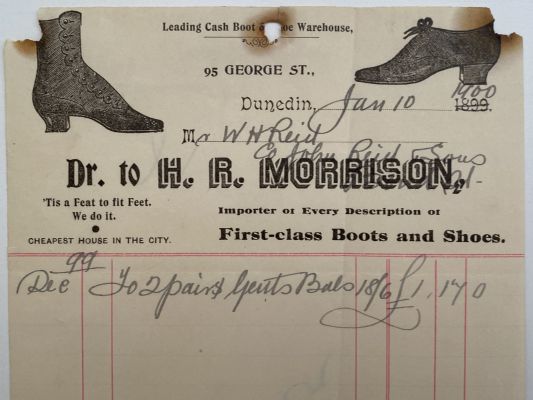 Leading Cash Boot & Shoe Warehouse,
95 GEORGE ST.,
Dunedin, Jan 10 1900
1899.
Mr W H Reid
C/o John Reid & Sons
Dr. to H. R. MORRISON,
'Tis a Feat to fit Feet.
We do it.
CHEAPEST HOUSE IN THE CITY.
Importer of Every Description of
First-class Boots and Shoes.
99
Dec To 2 pairs Gents Bals 18/6 £1.17 0